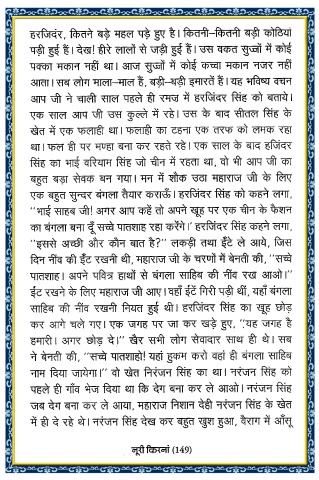 हरजिदंर, कितने बड़े महल पड़े हुए है। कितनी–कितनी बड़ी कोठियां
पड़ी हुई हैं। देख! हीरे लालों से जड़ी हुई हैं। उस वकत सुज्जों में कोई
पक्का मकान नहीं था। आज सुज्जों में कोई कच्चा मकान नजर नहीं
आता। सब लोग माला–माल हैं, बड़ी–बड़ी इमारतें हैं। यह भविष्य वचन
आप जी ने चाली साल पहले ही रमज में हरजिंदर सिंह को बताये।
एक साल आप जी उस कुल्ले में रहे। उस के बाद सीतल सिंह के
खेत में एक फलाही था। फलाही का टहना एक तरफ को लमक रहा
था। फल ही पर मण्हा बना कर रहते रहे। एक साल के बाद हजिंदर
सिंह का भाई वरियाम सिंह जो चीन में रहता था, वो भी आप जी का
बहुत बड़ा सेवक बन गया। मन में शोक उठा महाराज जी के लिए
एक बहुत सुन्दर बंगला तैयार कराऊँ। हरजिंदर सिंह को कहने लगा,
‘‘भाई साहब जी! अगर आप कहें तो अपने खूह पर एक चीन के फैशन
का बंगला बना दूँ सच्चे पातशाह रहा करेंगे।’ हरजिंदर सिंह कहने लगा,
‘‘इससे अच्छी और कौन बात है?’’ लकड़ी तथा ईंटे ले आये, जिस
दिन नींव की ईंट रखनी थी, महाराज जी के चरणों में बेनती की, ‘‘सच्चे
पातशाह। अपने पवित्र हाथों से बंगला साहिब की नींव रख आओ।’’
ईंट रखने के लिए महाराज जी आए। वहाँ ईटें गिरी पड़ी थीं, यहाँ बंगला
साहिब की नींव रखनी नियत हुई थी। हरजिंदर सिंह का खूह छोड़
कर आगे चले गए। एक जगह पर जा कर खड़े हुए, ‘‘यह जगह है
हमारी। अगर छोड़ दे।’’ खैर सभी लोग सेवादार साथ ही थे। सब
ने बेनती की, ‘‘सच्चे पातशाहो! यहां हुकम करो वहां ही बंगला साहिब
नाम दिया जायेगा।’’ वो खेत निरंजन सिंह का था। नरंजन सिंह को
पहले ही गाँव भेज दिया था कि देग बना कर ले आओ। नरंजन सिंह
जब देग बना कर ले आया, महाराज निशान देही नरंजन सिंह के खेत
में ही दे रहे थे। नरंजन सिंह देख कर बहुत खुश हुआ, वैराग में आँसू
नूरी किरनां (149)